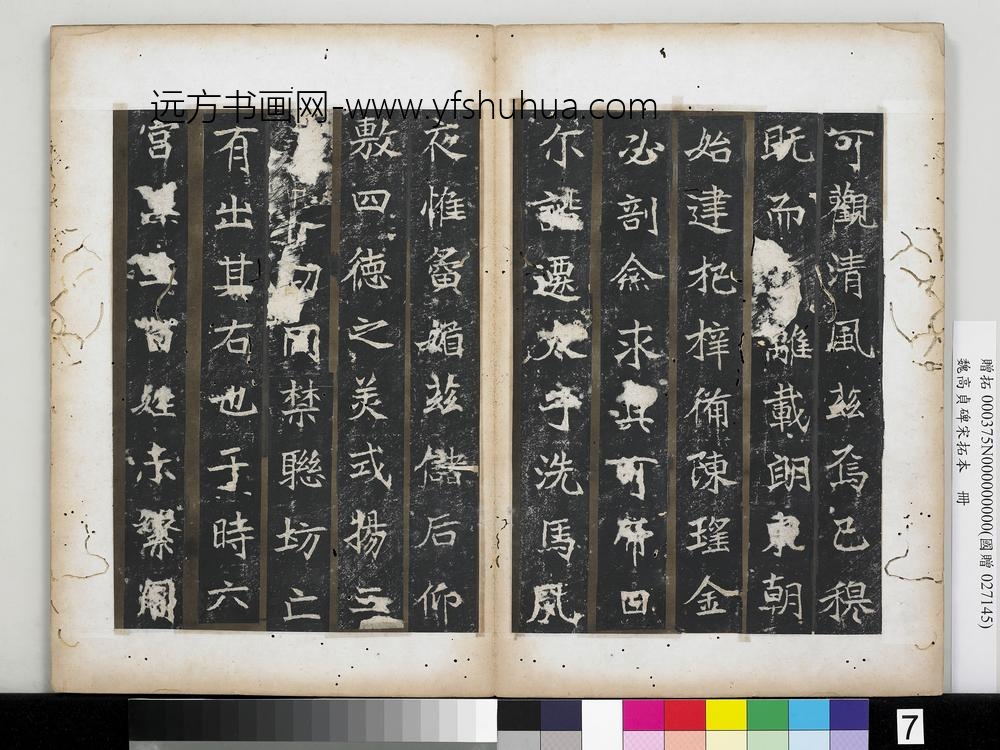 远方书画网-www.yfshuhua.com
可觀清風茲焉已穆
既而離載朗東朝
始建杞梓備陳瑤金
必剖僉求其可帝曰
尒諧遷太子洗馬夙
夜惟夤媚茲儲后仰
敷四德之美式揚三
切同禁聯坊亡
有出其右也于時六
宮百姓未繁閽
贈拓 000375N000000000(國贈 027145)
魏高貞碑宋拓本 冊
7